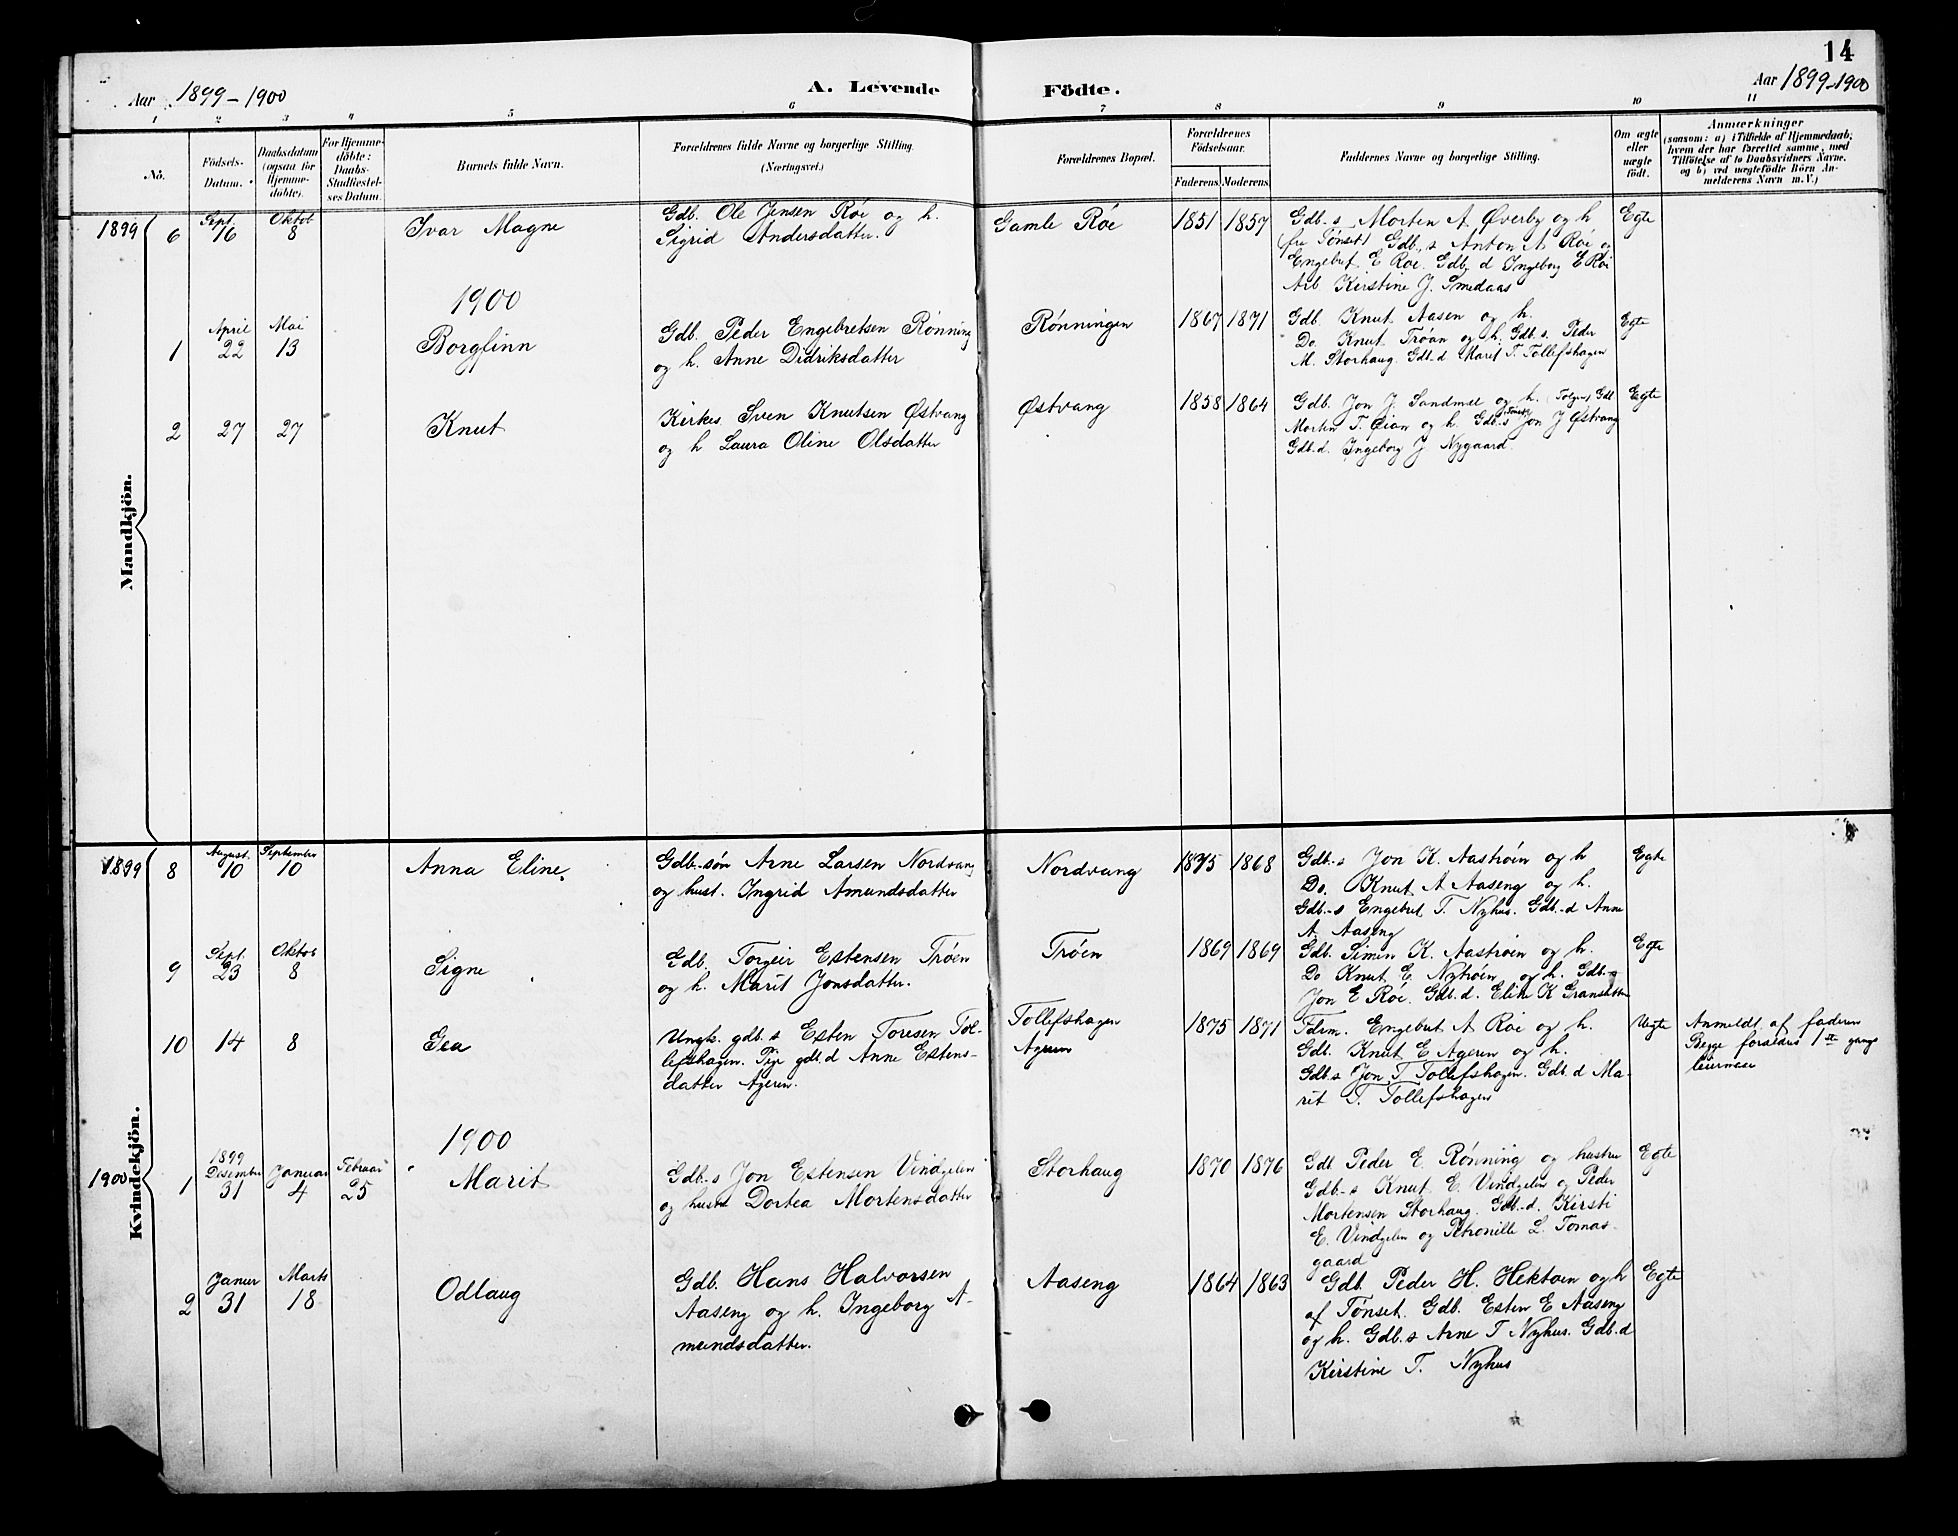 14
Aar 1899-1900
A. Levende Födte.
Aar 1899-1900
1 2 3 4 5 6 7 8 9 10 11
No.
Födsels-
Datum.
Daabsdatum
(ogsaa for
Hjemme-
döbte).
For Hjemme-
döbte:
Daabs-
Stadfæstel-
ses Datum.
Barnets fulde Navn.
Forældrenes fulde Navne og borgerlige Stilling.
(Næringsvei.)
Forældrenes Bopæl.
Forældrenes
Födselsaar.
Faderens Moderens
Faddernes Navne og borgerlige Stilling.
Om ægte
eller
uægte
födt.
Anmærkninger
(saasom: a) i Tilfælde af Hjemmedaab;
hvem der har forrettet samme, med
Tilföielse af to Daabsvidners Navne,
og b) ved uægtefödte Börn An-
melderens Navn m. V.)
Mandkjön.
1899
6
Sept.
16
Oktob
8
Ivar Magne
Gdb. Ole Jensen Røe og h.
Sigrid Andersdatter.
Gamle Røe
1851 1857
Gdb-s Morten A Øverby og h
(fra Tønset) Gdb.s Anton A Røe og
Engebret E Røe. Gdb d Ingeborg E Røe
Arb Kirstine J. Smedaas
Egte
1900
1
April
22
Mai
13
Borgfinn
Gdb. Peder Engebretsen Rønning
og h. Anne Didriksdatter
Rønningen
1867 1871
Gdb. Knut Aasen og h.
Do. Knut Trøan og h. Gdb.s. Peder
M. Storhaug. Gdb-d Marit T. Tollefshagen
Egte
2
27
27
Knut
Kirkes. Sven Knutsen Østvang
og h Laura Oline Olsdatter
Østvang
1858 1864
Gdb. Jon J. Sandmel og h. (Tolgen) Gdb
Morten T. Øian og h. Gdb-s Jon J Østvang
Gdb.d. Ingeborg J Nygaard.
Egte
Kvindekjön.
1899
8
August.
10
September
10
Anna Eline.
Gdb-søn Arne Larsen Nordvang
og hust. Ingrid Amundsdatter
Nordvang
1875 1868
Gdb-s Jon K. Aastrøen og h
Do. Knut A Aaseng og h.
Gdb-s Engebret T. Nyhus. Gdb-d Anne
A. Aaseng
Egte
9
Sept.
23
Oktob
8
Signe
Gdb. Torgeir Estensen Trøen
og h. Marit Jonsdatter.
Trøen
1869 1869
Gdb. Simen K. Aastrøen og h.
Do Knut E. Nytrøen og h. Gdb-s
Jon E Røe. Gdb.d. Eline K Gransletten
Egte
10
14
8
Gea
Ungk. gdb.s Esten Toresen Tol-
lefshagen. Pige gdb.d Anne Estens-
datter Ageren.
Tollefshagen
Ageren
1875 1871
Fdrm. Engebret A Røe og h.
Gdb. Knut E Ageren og h.
Gdb.s Jon T Tollefshagen. Gdb.d Ma-
rit T. Tollefshagen
Uegte
Anmeldt af faderen
Begge forældres 1ste gangs
leiermaal
1900
1900
1
1899
Desember
31
Januar
4
Februar
25
Marit
Gdb-s Jon Estensen Vindgelen
og hustr Dortea Mortensdatter
Storhaug
1870 1876
Gdb. Peder E. Rønning og hustru
Gdb-s Knut E. Vindgelen og Peder
Mortensen Storhaug. Gdb-d. Kirsti
E. Vindgelen og Petronille L. Tomas-
gaard
Egte
2
Januar
31
Marts
18
Odlaug
Gdb. Hans Halvorsen
Aaseng og h. Ingeborg A-
mundsdatter.
Aaseng
1864 1863
Gdb. Peder H. Hektoen og h
af Tønset. Gdb. Esten E Aaseng
og h. Gdb.s Arne T Nyhus. Gdb.d
Kirstine T. Nyhus
Egte